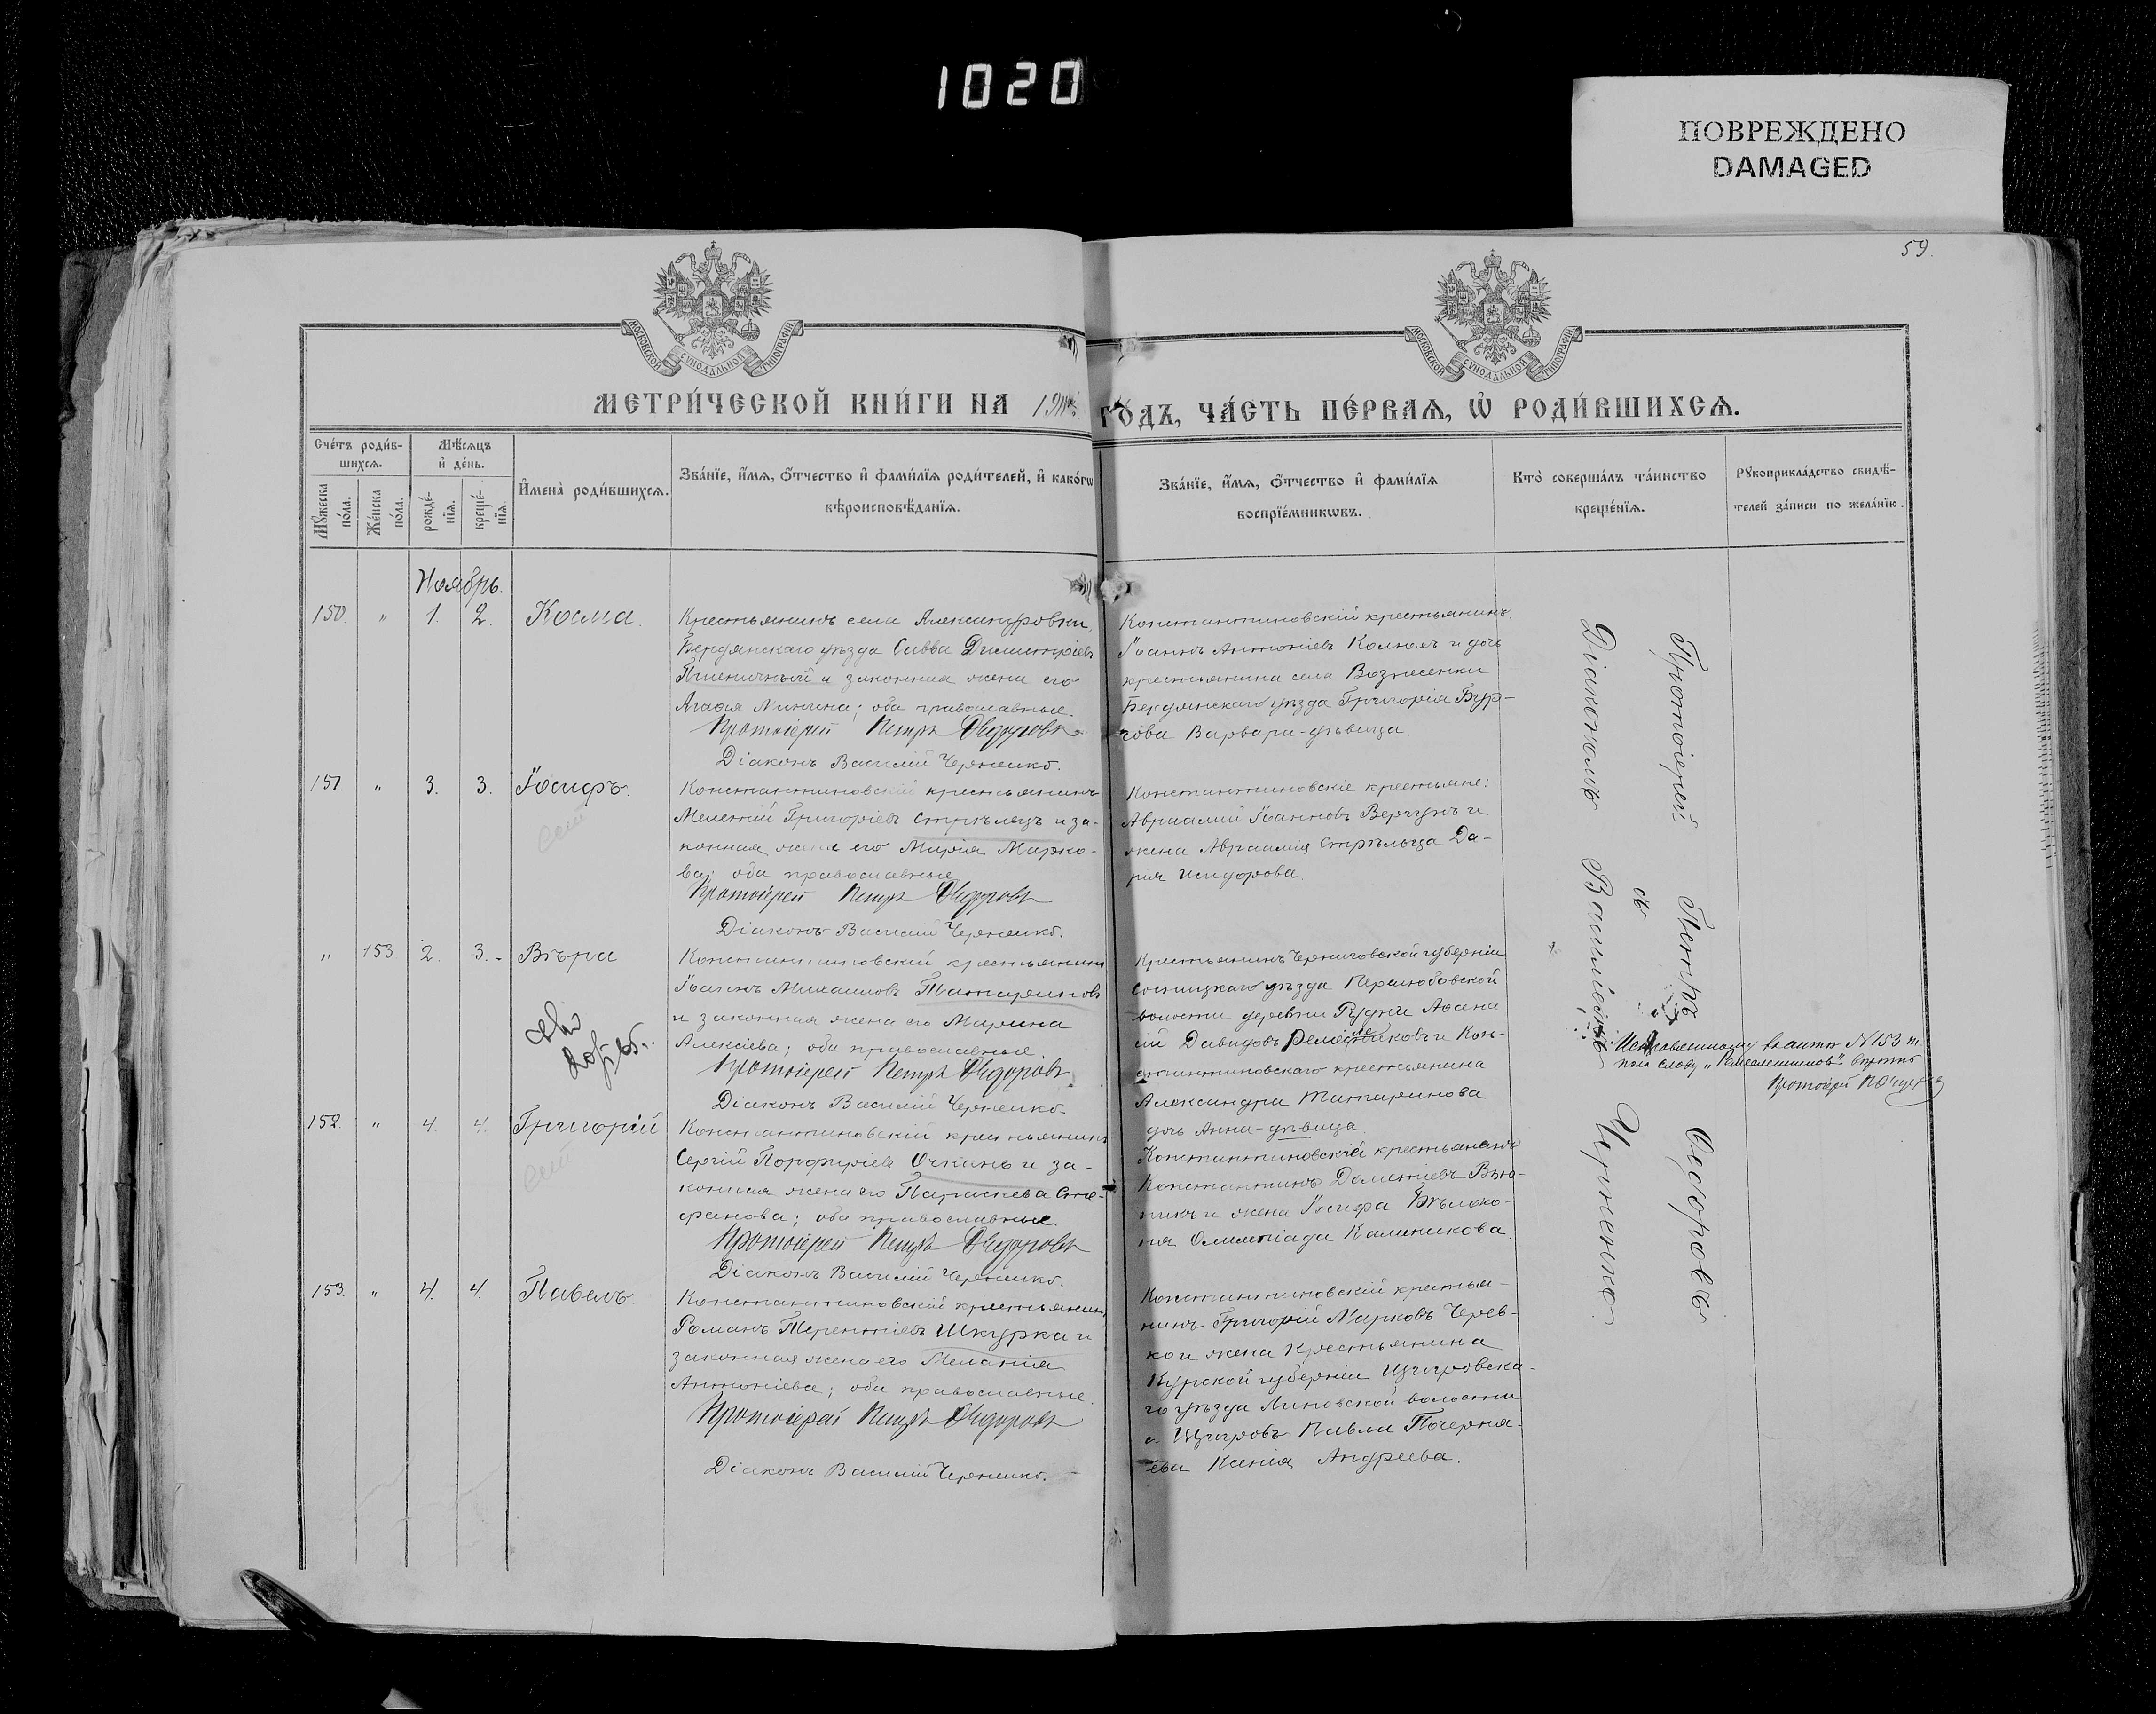 1020
ПОВРЕЖДЕНО
DAMAGED
59.
МОСКОВСКОЙ СѴНОДАЛЬНОЙ ТИПОГРАФІИ
МОСКОВСКОЙ СѴНОДАЛЬНОЙ ТИПОГРАФІИ
МЕТРИ́ЧЕСКОЙ КНИ́ГИ НА
ГО́ДЪ, ЧА́СТЬ ПЕ́РВАѦ, Ѡ҆ РОДИ́ВШИХСѦ.
Сче́тъ роди́в-
шихсѧ.
Мѣ́сѧцъ
и҆ де́нь.
Мꙋ́жеска
по́ла.
Же́нска
по́ла.
рожде́-
нїѧ.
креще́-
нїѧ.
И҆мена̀ роди́вшихсѧ.
Зва́нїе, и҆́мѧ, ѻ҆́тчество и҆ фами́лїѧ роди́телей, и҆ како́гѡ
вѣроисповѣ́данїѧ.
Зва́нїе, и҆́мѧ, ѻ҆́тчество и҆ фами́лїѧ
воспрїе́мникѡвъ.
Кто̀ соверша́лъ та́инство
креще́нїѧ.
Рꙋкоприкла́дство свидѣ́-
телей за́писи по жела́нїю.
Ноябрь.
150. " 1. 2. Косма.
Крестьянинъ села Александровки,
Бердянскаго уѣзда Савва Димитріевъ
Пшеничный и законная жена его
Агафія Минина; оба православные.
Протоіерей Петръ Ѳедоровъ
Діаконъ Василій Черненко.
Константиновскій крестьянинъ
Іоаннъ Антоніевъ и дочь
крестьянина села Вознесенки
Бердянскаго уѣзда Григорія Бур-
Варвара-дѣвица.
151. " 3. 3. Іосифъ.
Константиновскій крестьянинъ
Мелетій Григоріевъ Стрѣлецъ и за-
конная жена его Марія Марко-
ва; оба православные
Протоіерей Петръ Ѳедоровъ
Діаконъ Василій Черненко.
Константиновскіе крестьяне:
Авраамій Іоанновъ Вергунъ и
жена Авраамія Стрѣльца Да-
рія Исидорова.
" 153 2. 3. Вѣра
Константиновскій крестьянинъ
Іоаннъ Михаиловъ Татариновъ
и законная жена его Марина
Алексіева; оба православные.
Протоіерей Петръ Ѳедоровъ
Діаконъ Василій Черненко.
Крестьянинъ Черниговской губерніи
Сосницкаго уѣзда Перелюбовской
волости деревни Рудни Аѳана
сій Давидовъ и Кон-
стантиновскаго крестьянина
Александра Татаринова
дочь Анна-дѣвица.
152. " 4. 4. Григорій
Константиновскій крестьянинъ
Сергій Порфиріевъ Очкань и за-
конная жена его Параскева Сте-
фанова; оба православные
Протоіерей Петръ Ѳедоровъ
Діаконъ Василій Черненко.
Константиновскій крестьянинъ
Константинъ Дометіевъ Вью-
никъ и жена Іосифа Бѣлоко-
ня Олимпіада Калиникова.
153. " 4. 4. Павелъ
Константиновскій крестьянинъ
Романъ Терентіевъ Шкурка и
законная жена его Меланія
Антоніева; оба православные.
Протоіерей Петръ Ѳедоровъ
Діаконъ Василій Черненко.
Константиновскій крестья-
нинъ Григорій Марковъ Черев-
ко и жена крестьянина
Курской губерніи Щигровска-
го уѣзда Липовской волости
Павла
Ксенія Андреева.
Протоіерей Петръ Ѳедоровъ
съ
Діакономъ Василіемъ Черненко.